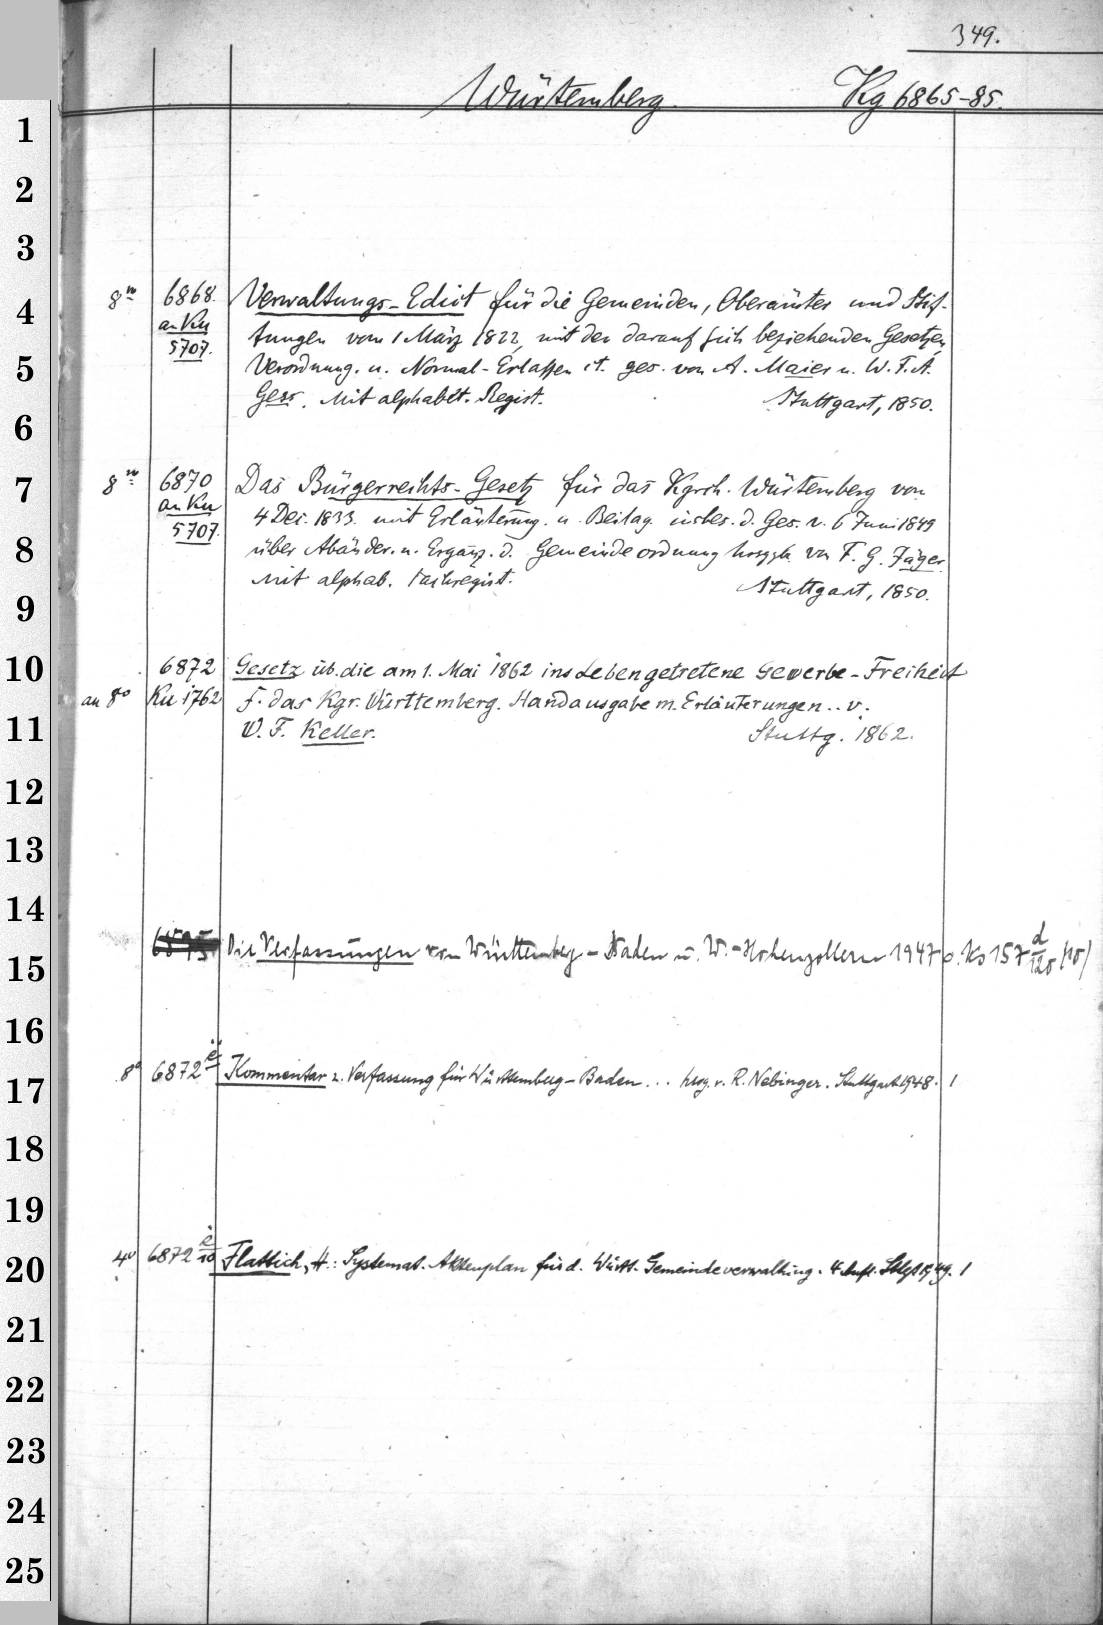 349.
Würtemberg. Kg 6865-85.
1
2
3
8º 6868. Verwaltungs-Edict für die Gemeinden, Oberämter und Stif-
4
an Ku tungen vom 1 März 1822, mit den darauf sich beziehenden Gesetzen,
5707.
5
Verordnung. u. Normal-Erlassen et. ges. von A. Maier u. W. F. A.
Gess. Mit alphabet. Regist. Stuttgart, 1850.
6
8º 6870 Das Bürgerrechts-Gesetz für das Kgrch. Würtemberg von
7
an Ku 4 Dec. 1833. mit Erläuterung. u. Beilag. insbes. d. Ges. v. 6 Juni 1849
5707.
8
über Abänder. u. Ergänz. d. Gemeindeordnung hrsgg. von F. G. Jäger.
Mit alphab. Sachregist. Stuttgart, 1850.
9
10
6872 Gesetz üb. die am 1. Mai 1862 ins Leben getretene Gewerbe-Freiheit
an 8º Ku 1762 f. das Kgr. Württemberg. Handausgabe m. Erläuterungen .. v.
11
W. F. Keller. Stuttg. 1862.
12
13
14
Die Verfassungen von Württemberg-Baden u. W.-Hohenzollern 1947 s. Ks 157 d/120 (10)
15
16
8º 6872 e Kommentar z. Verfassung für Württemberg-Baden ... hrsg. v. R. Nebinger. Stuttgart 1948. 1
17
18
19
4º 6872 e/10 Flattich, H.: Systemat. Aktenplan für d. Württ. Gemeindeverwaltung. 4. Aufl. Stgt 1949. 1
20
21
22
23
24
25